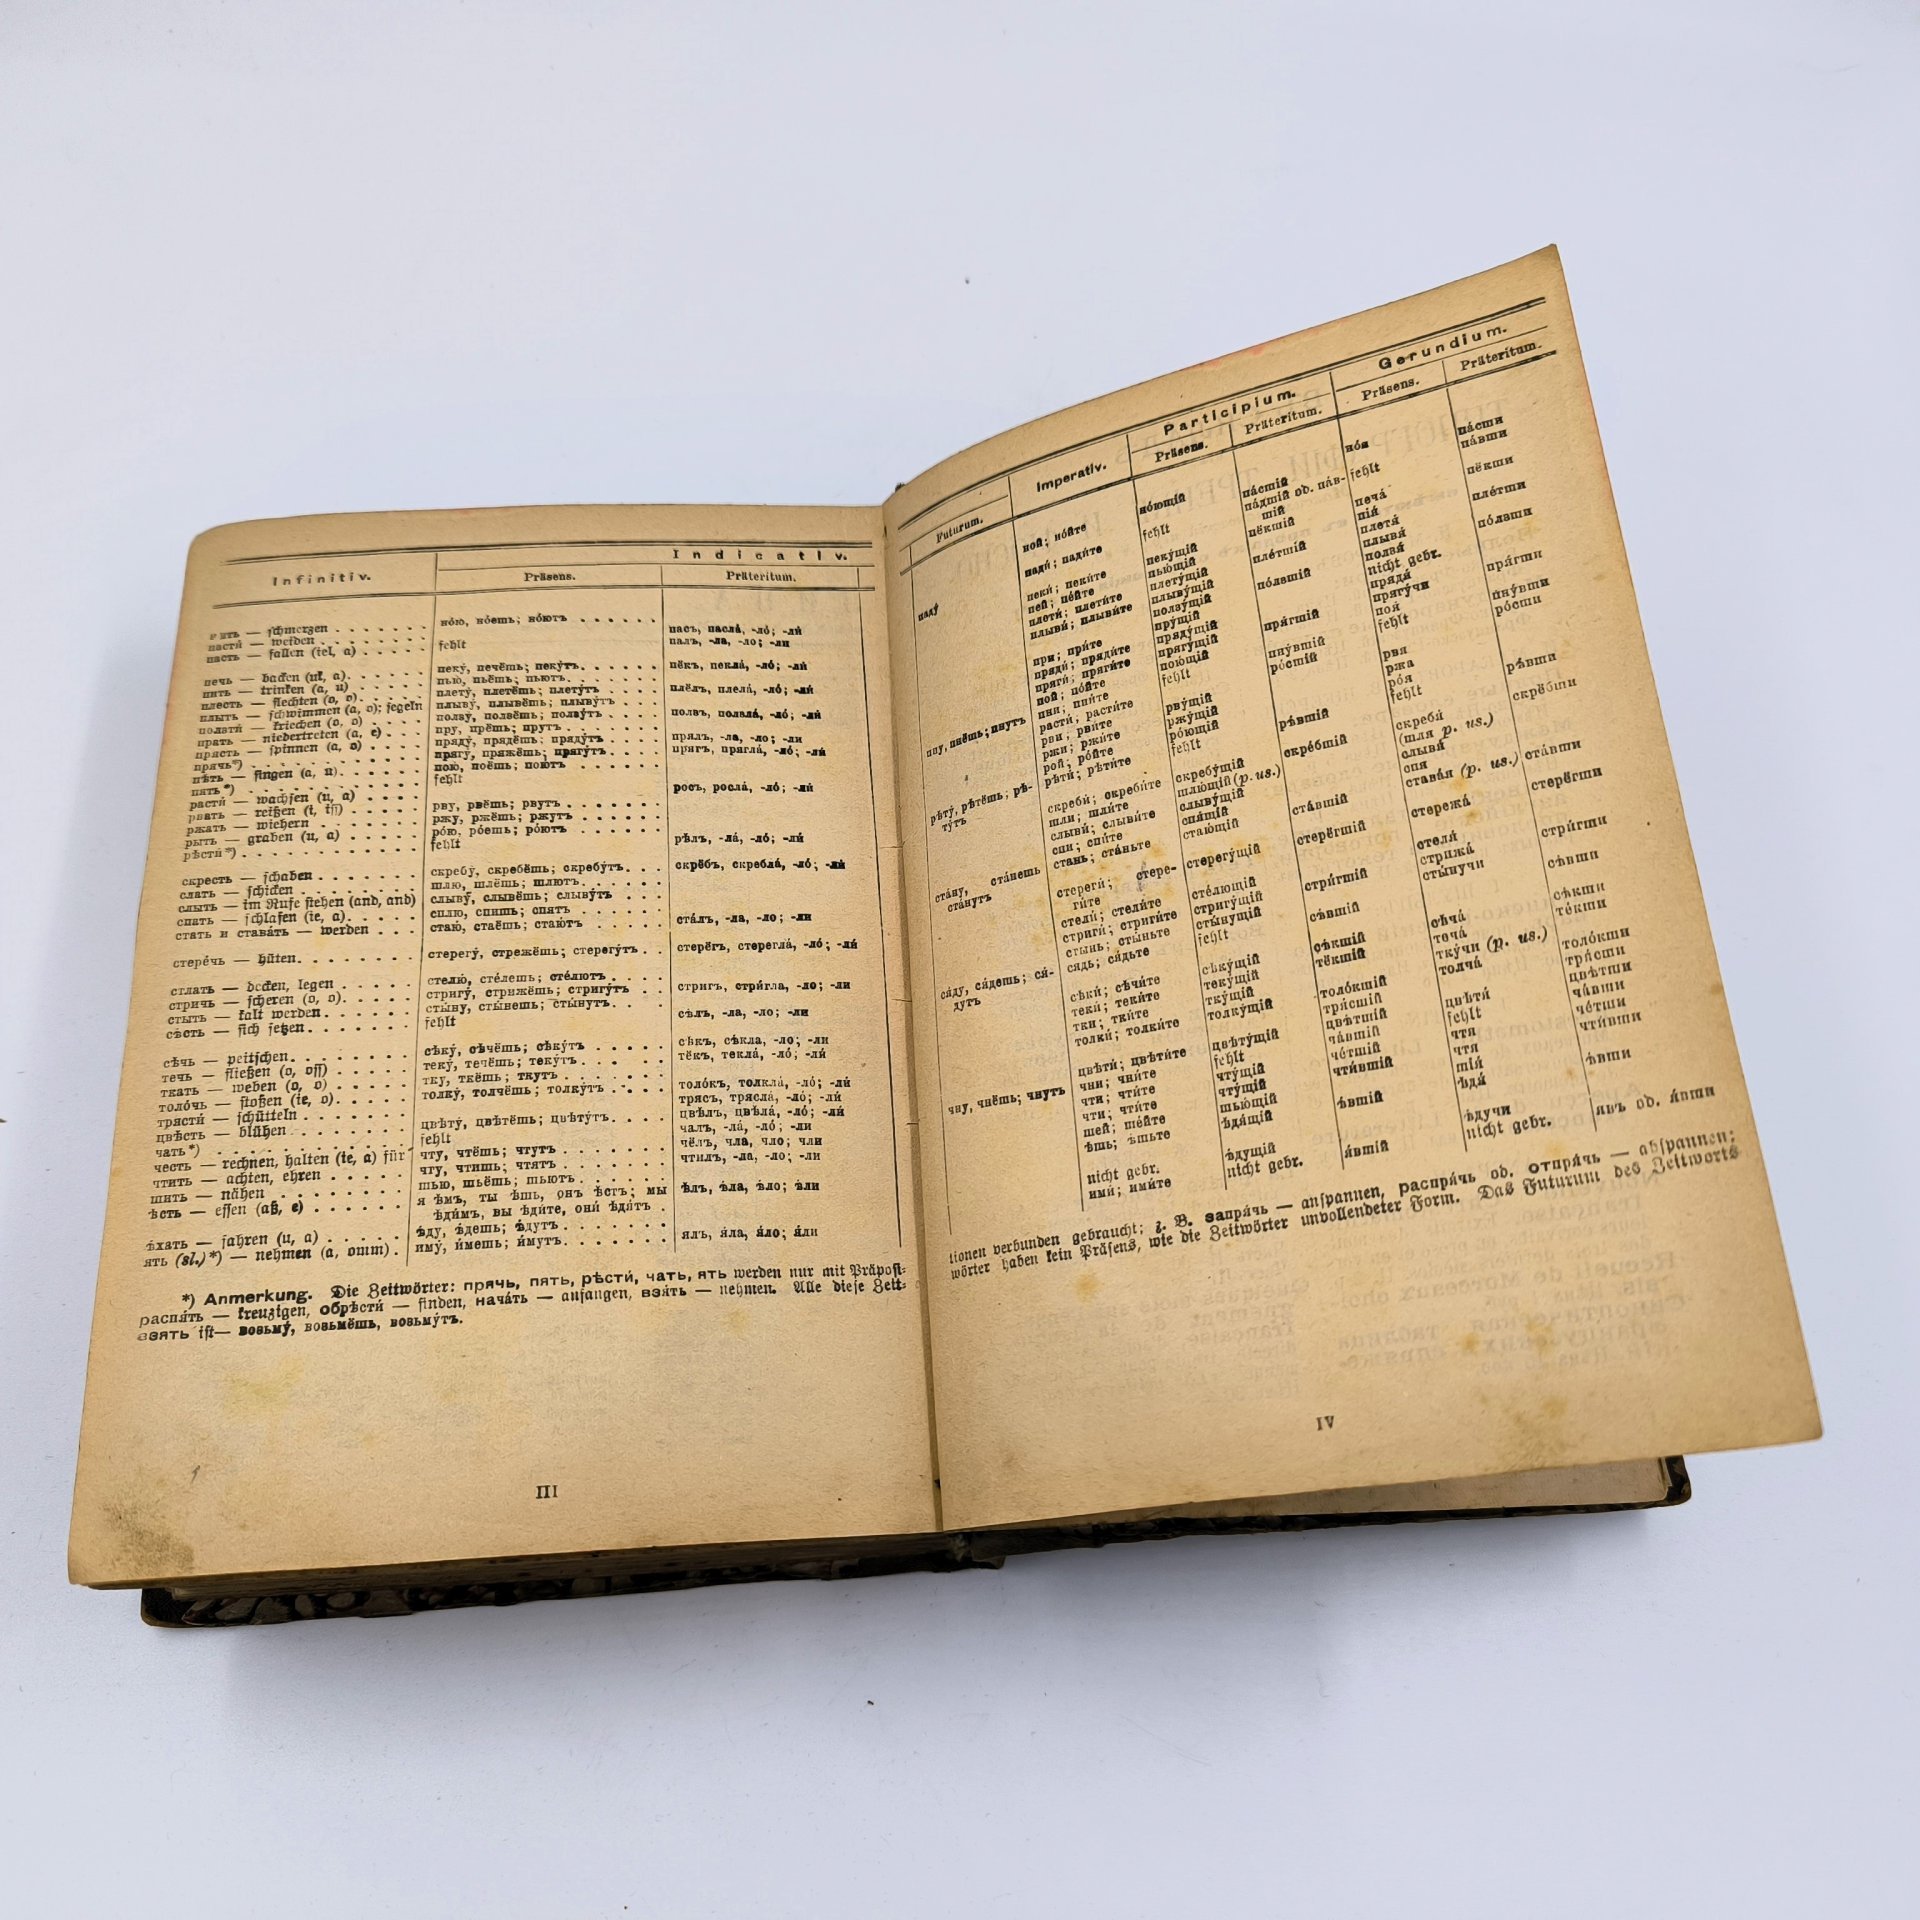 Indicativ.
Infinitiv.
Präsens.
Präteritum.
— schmerzen . . . . . . . но́ю, но́ешь; но́ютъ . . . . . .
пасти́ — weiden . . . . . . . пасъ, пасла́, -ло́; -ли́
пасть — fallen (iel, a) . . . . . fehlt палъ, -ла, -ло; -ли
печь — backen (uk, a). . . . . . пеку́, печёшь; пеку́тъ. . . . . . пёкъ, пекла́, -ло́; -ли́
пить — trinken (a, u) . . . . . пью, пьёшь; пьютъ. . . . . . .
плесть — flechten (o, o). . . . . плету́, плетёшь; плету́тъ . . . . плёлъ, плела́, -ло́; -ли́
плыть — schwimmen (a, o); segeln плыву́, плывёшь; плыву́тъ . . .
ползти́ — kriechen (o, o) . . . . ползу́, ползёшь; ползу́тъ . . . . ползъ, ползла́, -ло́; -ли́
прать — niedertreten (a, e) . . . пру, прёшь; прутъ. . . . . . .
прясть — spinnen (a, o) . . . . пряду́, прядёшь; пряду́тъ . . . . прялъ, -ла, -ло; -ли
прячь*) . . . . . . . . . . . прягу́, пряжёшь; прягу́тъ. . . . прягъ, прягла́, -ло́; -ли́
пѣть — singen (a, u). . . . . . пою́, поёшь; пою́тъ . . . . . .
пять*) . . . . . . . . . . . . fehlt
расти́ — wachsen (u, a) . . . . росъ, росла́, -ло́; -ли́
рвать — reißen (i, iss) . . . . . рву, рвёшь; рвутъ . . . . . . .
ржать — wiehern . . . . . . . ржу, ржёшь; ржутъ . . . . . .
рыть — graben (u, a) . . . . . ро́ю, ро́ешь; ро́ютъ . . . . . .
рѣсти́*) . . . . . . . . . . . . fehlt рѣлъ, -ла́, -ло́; -ли́
скресть — schaben . . . . . . . скребу́, скребёшь; скребу́тъ. . . скрёбъ, скребла́, -ло́; -ли́
слать — schicken . . . . . . . . шлю, шлёшь; шлютъ. . . . . .
слыть — im Rufe stehen (and, and) слыву́, слывёшь; слыву́тъ . . .
спать — schlafen (ie, a). . . . . сплю, спишь; спятъ . . . . . .
стать и става́ть — werden . . . стаю́, стаёшь; стаю́тъ . . . . . ста́лъ, -ла, -ло; -ли
стере́чь — hüten. . . . . . . . стерегу́, стрежёшь; стерегу́тъ. . стерёгъ, стерегла́, -ло́; -ли́
стлать — decken, legen . . . . . стелю́, сте́лешь; сте́лютъ . . . .
стричь — scheren (o, o). . . . . стригу́, стрижёшь; стригу́тъ . . стригъ, стри́гла, -ло; -ли
стыть — kalt werden. . . . . . сты́ну, сты́нешь; сты́нутъ. . . .
сѣсть — sich setzen. . . . . . . fehlt сѣлъ, -ла, -ло; -ли
сѣчь — peitschen. . . . . . . . сѣку́, сѣчёшь; сѣку́тъ . . . . . сѣкъ, сѣкла, -ло; -ли
течь — fließen (o, oss) . . . . . теку́, течёшь; теку́тъ. . . . . . тёкъ, текла́, -ло́; -ли́
ткать — weben (o, o) . . . . . тку, ткёшь; ткутъ . . . . . . .
толо́чь — stoßen (ie, o). . . . . толку́, толчёшь; толку́тъ . . . . толо́къ, толкла́, -ло́; -ли́
трясти́ — schütteln . . . . . . . трясъ, трясла́, -ло́; -ли́
цвѣсть — blühen . . . . . . . . цвѣту́, цвѣтёшь; цвѣту́тъ. . . . цвѣлъ, цвѣла́, -ло́; -ли́
чать*) . . . . . . . . . . . . fehlt чалъ, -ла́, -ло́; -ли
честь — rechnen, halten (ie, a) für чту, чтёшь; чтутъ . . . . . . . чёлъ, чла, чло; чли
чтить — achten, ehren . . . . . чту, чтишь; чтятъ . . . . . . . чтилъ, -ла, -ло; -ли
шить — nähen . . . . . . . . шью, шьёшь; шьютъ. . . . . .
ѣсть — essen (aß, e) . . . . . . я ѣмъ, ты ѣшь, онъ ѣстъ; мы ѣлъ, ѣ́ла, ѣ́ло; ѣ́ли
ѣди́мъ, вы ѣди́те, они́ ѣдя́тъ .
ѣ́хать — fahren (u, a) . . . . . ѣ́ду, ѣ́дешь; ѣ́дутъ . . . . . . .
ять (sl.)*) — nehmen (a, omm) . иму́, и́мешь; и́мутъ. . . . . . . ялъ, я́ла, я́ло; я́ли
*) Anmerkung. Die Zeitwörter: прячь, пять, рѣсти́, чать, ять werden nur mit Präposi-
распя́ть — kreuzigen, обрѣсти́ — finden, нача́ть — anfangen, взять — nehmen. Alle diese Zeit-
взять ist— возьму́, возьмёшь, возьму́тъ.
III
Gerundium.
Participium.
Futurum.
Imperativ.
Präsens.
Präteritum.
Präsens.
Präteritum.
ной; но́йте но́ющій но́я
па́сшій па́сши
паду́ пади́; пади́те fehlt па́дшій od. па́в- fehlt па́вши
шій
пеки́; пеки́те пеку́щій пёкшій печа́ пёкши
пей; пе́йте пью́щій пія́
плети́; плети́те плету́щій плётшій плетя́ плётши
плыви́; плыви́те плыву́щій плывя́
ползу́щій по́лзшій ползя́ по́лзши
при; при́те пру́щій nicht gebr.
пряди́; пряди́те пряду́щій прядя́
пряги́; пряги́те прягу́щій пря́гшій прягу́чи пря́гши
пой; по́йте пою́щій поя́
пну, пнёшь; пнутъ пни; пни́те fehlt пну́вшій fehlt пну́вши
расти́; расти́те ро́сшій ро́сши
рви; рви́те рву́щій рвя
ржи; ржи́те ржу́щій ржа
рой; ро́йте ро́ющій ро́я
рѣту́, рѣтёшь; рѣ- рѣти́; рѣти́те fehlt рѣ́вшій fehlt рѣ́вши
ту́тъ
скреби́; скреби́те скребу́щій скрёбшій скребя́ скрёбши
шли; шли́те шлю́щій (p. us.) (шля p. us.)
слыви́; слыви́те слыву́щій слывя́
спи; спи́те спя́щій спя
ста́ну, ста́нешь стань; ста́ньте стаю́щій ста́вшій става́я (p. us.) ста́вши
ста́нутъ
стереги́; стере- стерегу́щій стерёгшій стережа́ стерёгши
ги́те
стели́; стели́те сте́лющій стеля́
стриги́; стриги́те стригу́щій стри́гшій стрижа́ стри́гши
стынь; сты́ньте сты́нущій сты́нучи
ся́ду, ся́дешь; ся́- сядь; ся́дьте fehlt сѣ́вшій сѣ́вши
дутъ
сѣки́; сѣчи́те сѣку́щій сѣ́кшій сѣча́ сѣ́кши
теки́; теки́те теку́щій тёкшій теча́ тёкши
тки; тки́те тку́щій тку́чи (p. us.)
толки́; толки́те толку́щій толо́кшій толча́ толо́кши
тря́сшій тря́сши
цвѣти́; цвѣти́те цвѣту́щій цвѣ́тшій цвѣтя́ цвѣ́тши
чну, чнёшь; чнутъ чни; чни́те fehlt ча́вшій fehlt ча́вши
чти; чти́те чту́щій чётшій чтя чётши
чти; чти́те чту́щій чти́вшій чтя чти́вши
шей; ше́йте шью́щій шія́
ѣшь; ѣ́шьте ѣдя́щій ѣ́вшій ѣдя́ ѣ́вши
nicht gebr. ѣ́дущій ѣ́дучи
ими́; ими́те nicht gebr. я́вшій nicht gebr. явъ od. я́вши
tionen verbunden gebraucht; z. B. запря́чь — anspannen, распря́чь od. отпря́чь — abspannen;
wörter haben kein Präsens, wie die Zeitwörter unvollendeter Form. Das Futurum des Zeitworts
IV